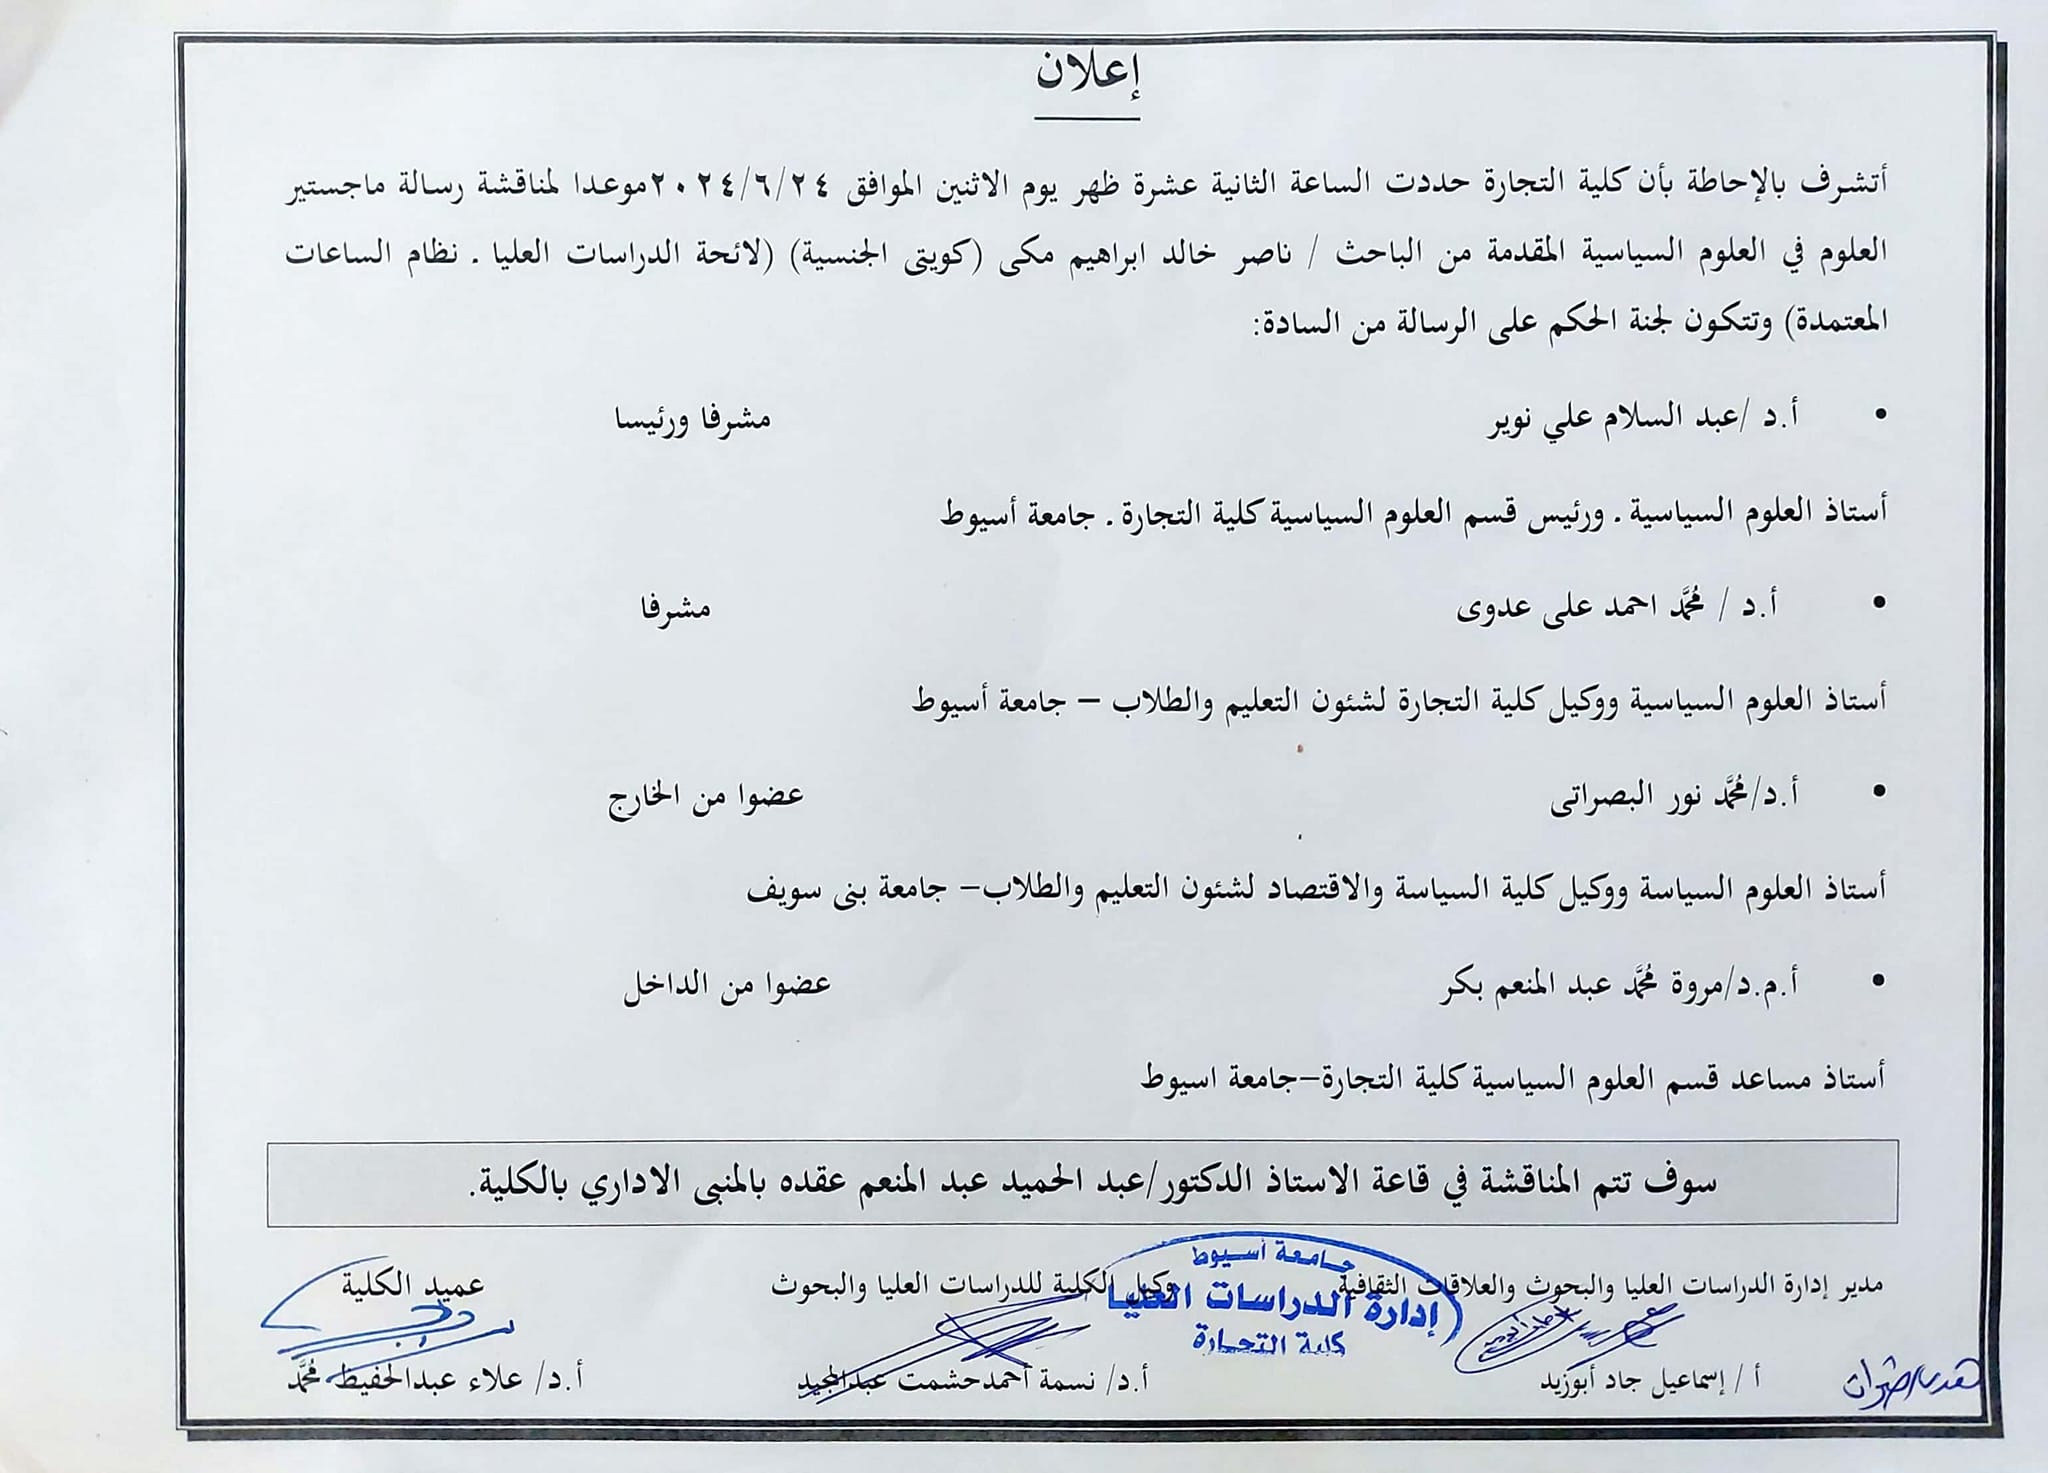 إعلان
أتشرف بالإحاطة بأن كلية التجارة حددت الساعة الثانية عشرة ظهر يوم الاثنين الموافق ٢٠٢٤/٦/٢٤موعدا لمناقشة رسالة ماجستير
العلوم في العلوم السياسية المقدمة من الباحث / ناصر خالد ابراهيم مكى (كويتى الجنسية) (لائحة الدراسات العليا . نظام الساعات
المعتمدة) وتتكون لجنة الحكم على الرسالة من السادة:
• أ.د /عبد السلام علي نوير مشرفا ورئيسا
أستاذ العلوم السياسية . ورئيس قسم العلوم السياسية كلية التجارة . جامعة أسيوط
• أ.د / مُحَمَّد احمد على عدوى مشرفا
أستاذ العلوم السياسية ووكيل كلية التجارة لشئون التعليم والطلاب – جامعة أسيوط
• أ.د/مُحَمَّد نور البصراتى عضوا من الخارج
أستاذ العلوم السياسة ووكيل كلية السياسة والاقتصاد لشئون التعليم والطلاب– جامعة بنى سويف
• أ.م.د/مروة مُحَمَّد عبد المنعم بكر عضوا من الداخل
أستاذ مساعد قسم العلوم السياسية كلية التجارة–جامعة اسيوط
سوف تتم المناقشة في قاعة الاستاذ الدكتور/عبد الحميد عبد المنعم عقده بالمنبى الاداري بالكلية.
مدير إدارة الدراسات العليا والبحوث والعلاقات الثقافية وكيل الكلية للدراسات العليا والبحوث عميد الكلية
جامعة أسيوط
إدارة الدراسات العليا
كلية التجارة
أ / إسماعيل جاد أبوزيد أ.د/ نسمة أحمدحشمت عبدالمجيد أ.د/ علاء عبدالحفيظ مُحَمَّد